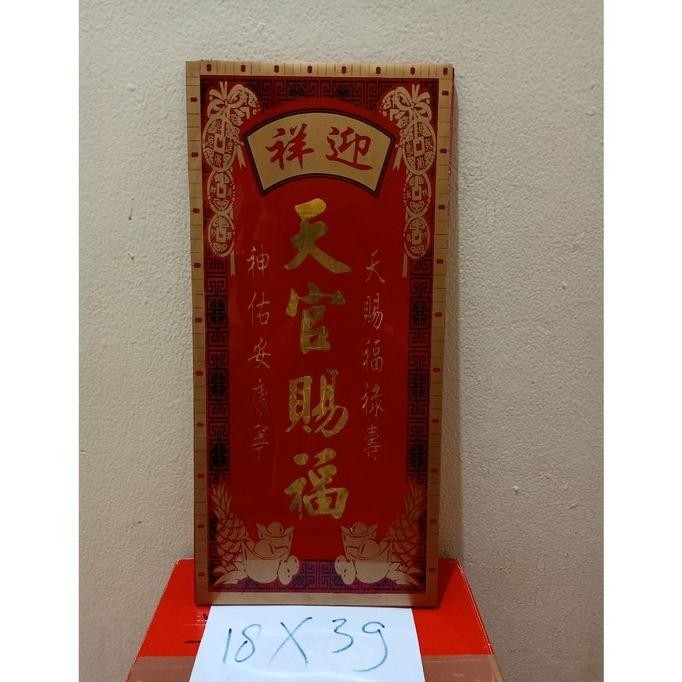 迎祥
天賜福祿壽
天官賜福
神佑安康寧
18 X 39